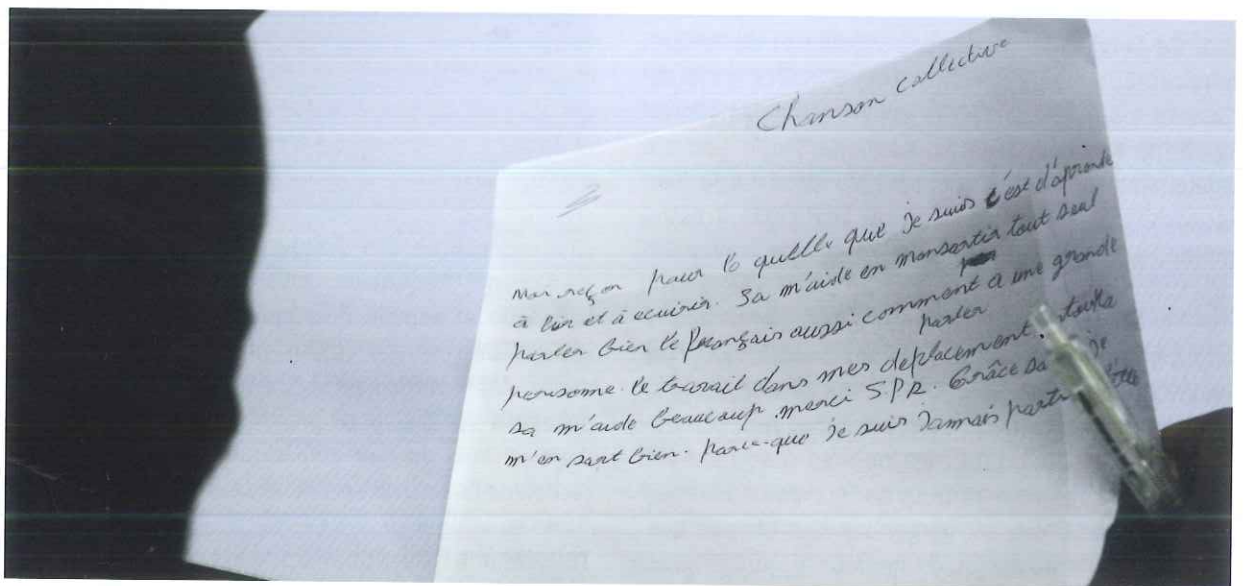 Chanson collective
pour la quelle que Je suis c'est d'aprende
à lir et à ecuirir. Sa m'aide en monsortir tout seul
parler bien le français aussi comment a une grande
parler
personne. le travail dans mes deplacement.
sa m'aide beaucoup. merci S.P.R. Grâce
m'en sort bien. parce-que Je suis Jamais